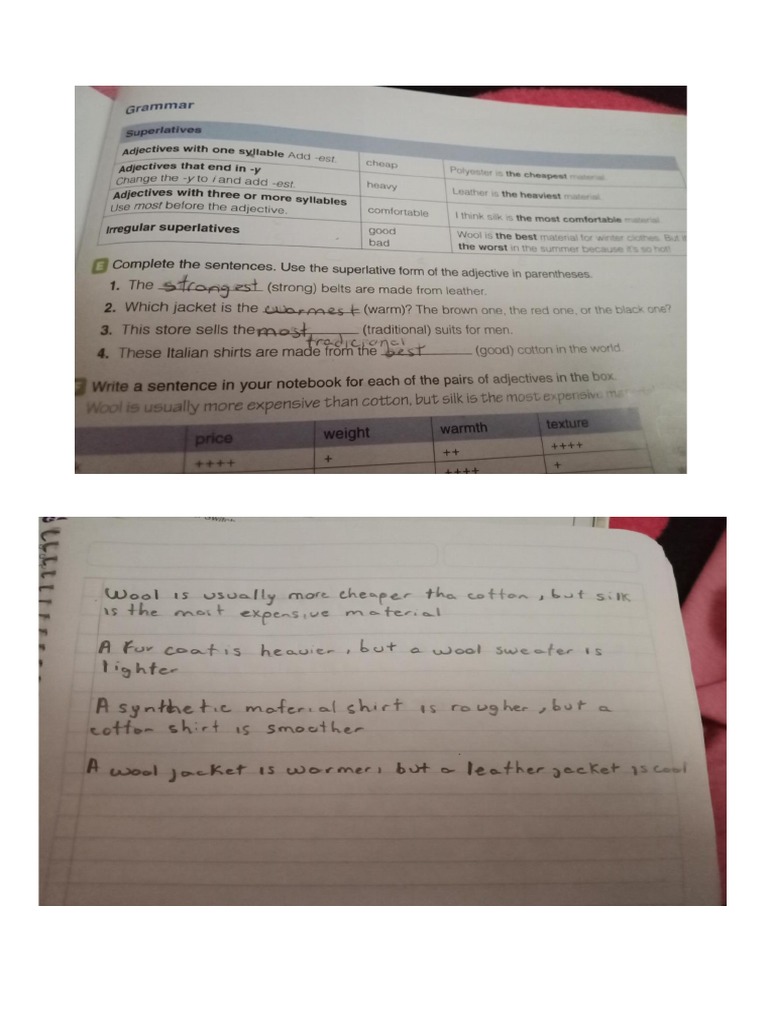 Grammar
Superlatives
Adjectives with one syllable Add -est.
cheap
Polyester is the cheapest material.
Adjectives that end in -y
Change the -y to i and add -est.
heavy
Leather is the heaviest material.
Adjectives with three or more syllables
Use most before the adjective.
comfortable
I think silk is the most comfortable material.
Irregular superlatives
good
bad
Wool is the best material for winter clothes. But it
the worst in the summer because it's so hot!
E Complete the sentences. Use the superlative form of the adjective in parentheses.
1. The strongest (strong) belts are made from leather.
2. Which jacket is the warmest (warm)? The brown one, the red one, or the black one?
3. This store sells the most tradicional (traditional) suits for men.
4. These Italian shirts are made from the best (good) cotton in the world.
F Write a sentence in your notebook for each of the pairs of adjectives in the box.
Wool is usually more expensive than cotton, but silk is the most expensive
price weight warmth texture
++++ + ++ ++++
++++ +
Wool is usually more cheaper tha cotton, but silk
is the most expensive material
A fur coat is heavier, but a wool sweater is
lighter
A synthetic material shirt is rougher, but a
cotton shirt is smoother
A wool jacket is warmer, but a leather jacket is cool